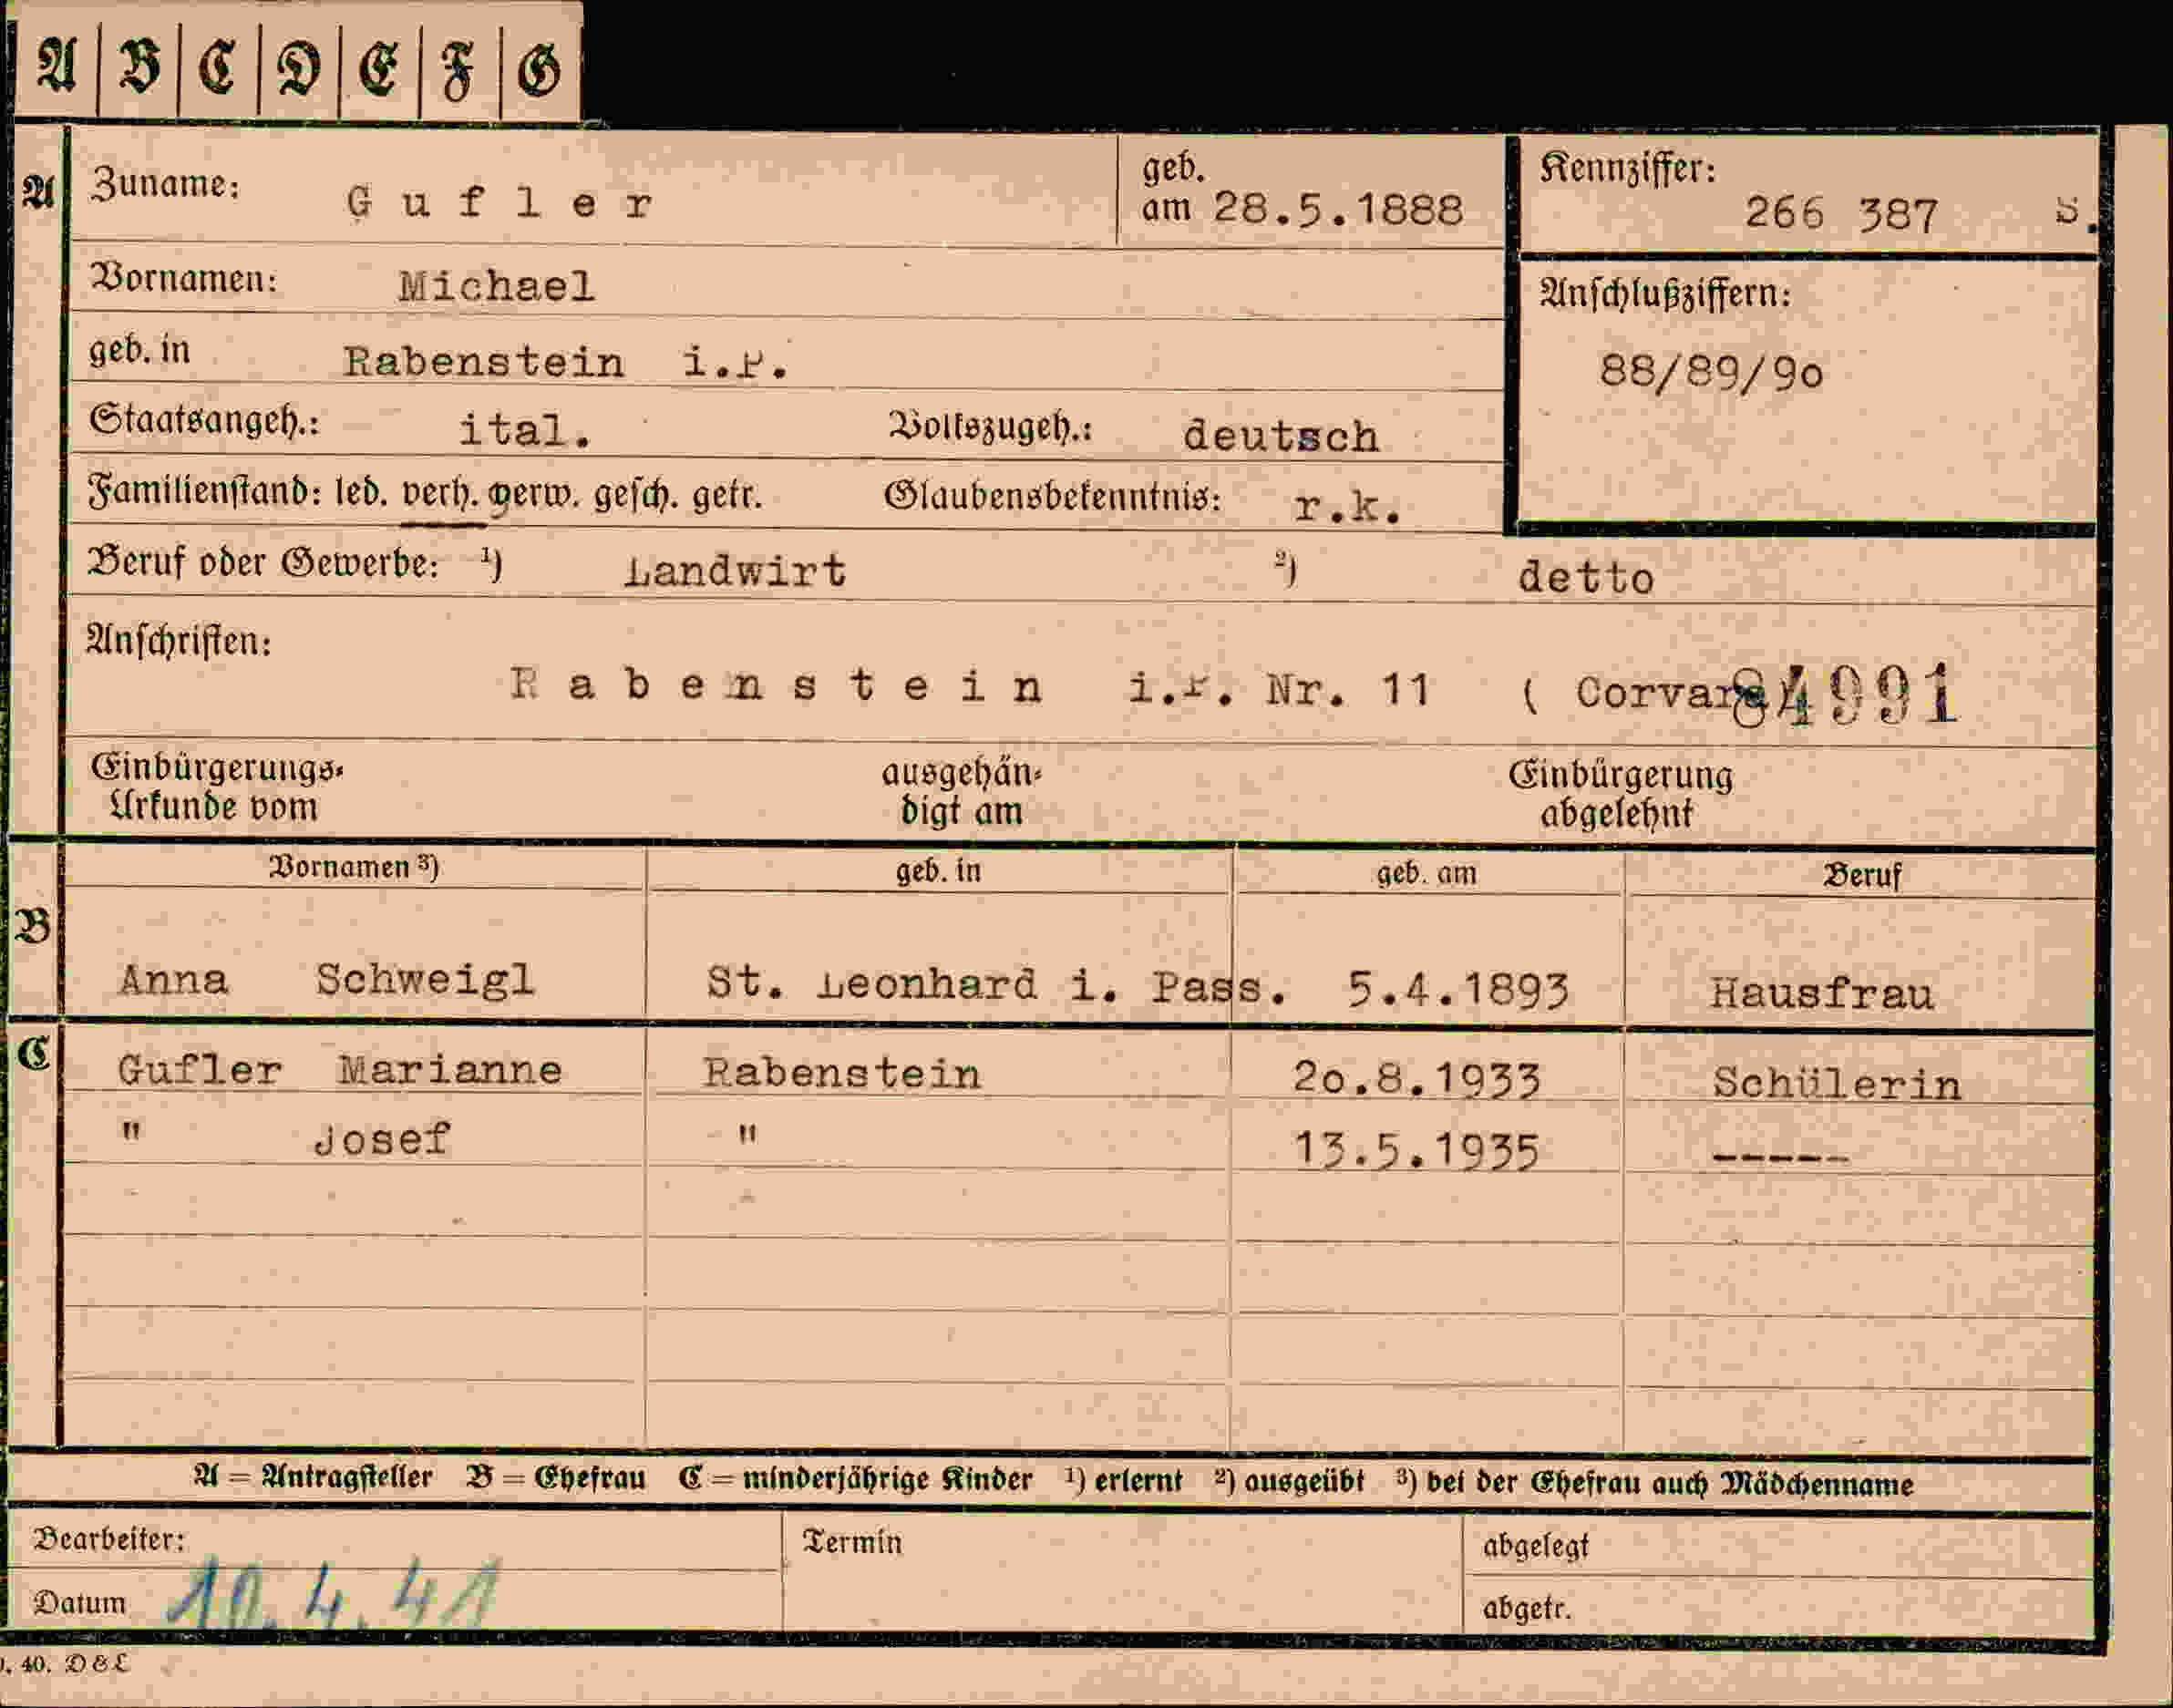 A B C D E F G
A Zuname: Gufler geb. am 28.5.1888 Kennziffer: 266 387 S.
Vornamen: Michael Anschlußziffern:
geb. in Rabenstein i.P. 88/89/90
Staatsangeh.: ital. Volkszugeh.: deutsch
Familienstand: led. verh. verw. gesch. getr. Glaubensbekenntnis: r.k.
Beruf oder Gewerbe: 1) Landwirt 2) detto
Anschriften:
Rabenstein i.P. Nr. 11 ( Corvara ) 84991
Einbürgerungs- ausgehän- Einbürgerung
Urkunde vom digt am abgelehnt
Vornamen 3) geb. in geb. am Beruf
B
Anna Schweigl St. Leonhard i. Pass. 5.4.1893 Hausfrau
C Gufler Marianne Rabenstein 20.8.1933 Schülerin
" Josef " 13.5.1935 -----
A = Antragsteller B = Ehefrau C = minderjährige Kinder 1) erlernt 2) ausgeübt 3) bei der Ehefrau auch Mädchenname
Bearbeiter: Termin abgelegt
Datum 10.4.41 abgetr.
40. D & L